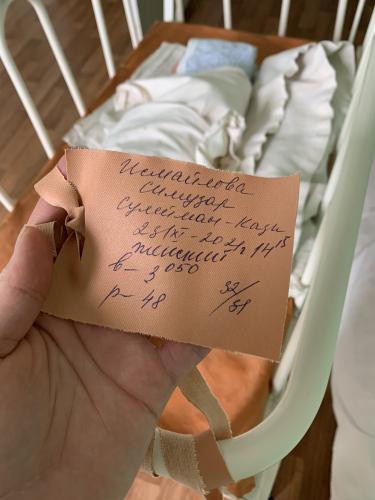 Исмайлова
Симузар
Сулейман-Кази
23/XI-2021г 14 15
женский
в-3 050
р-48 32/31